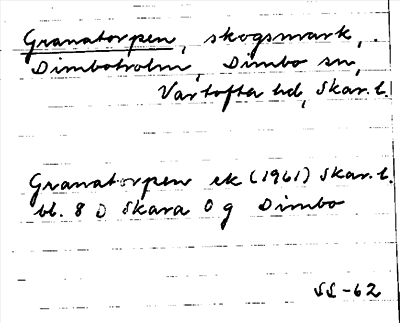 Granatorpen, skogsmark,
Dimbotrolm, Dimbo sn,
Vartofta hd, Skar. l.
Granatorpen ek (1961) Skar. l.
bl. 8 D Skara 0 g Dimbo
SS-62